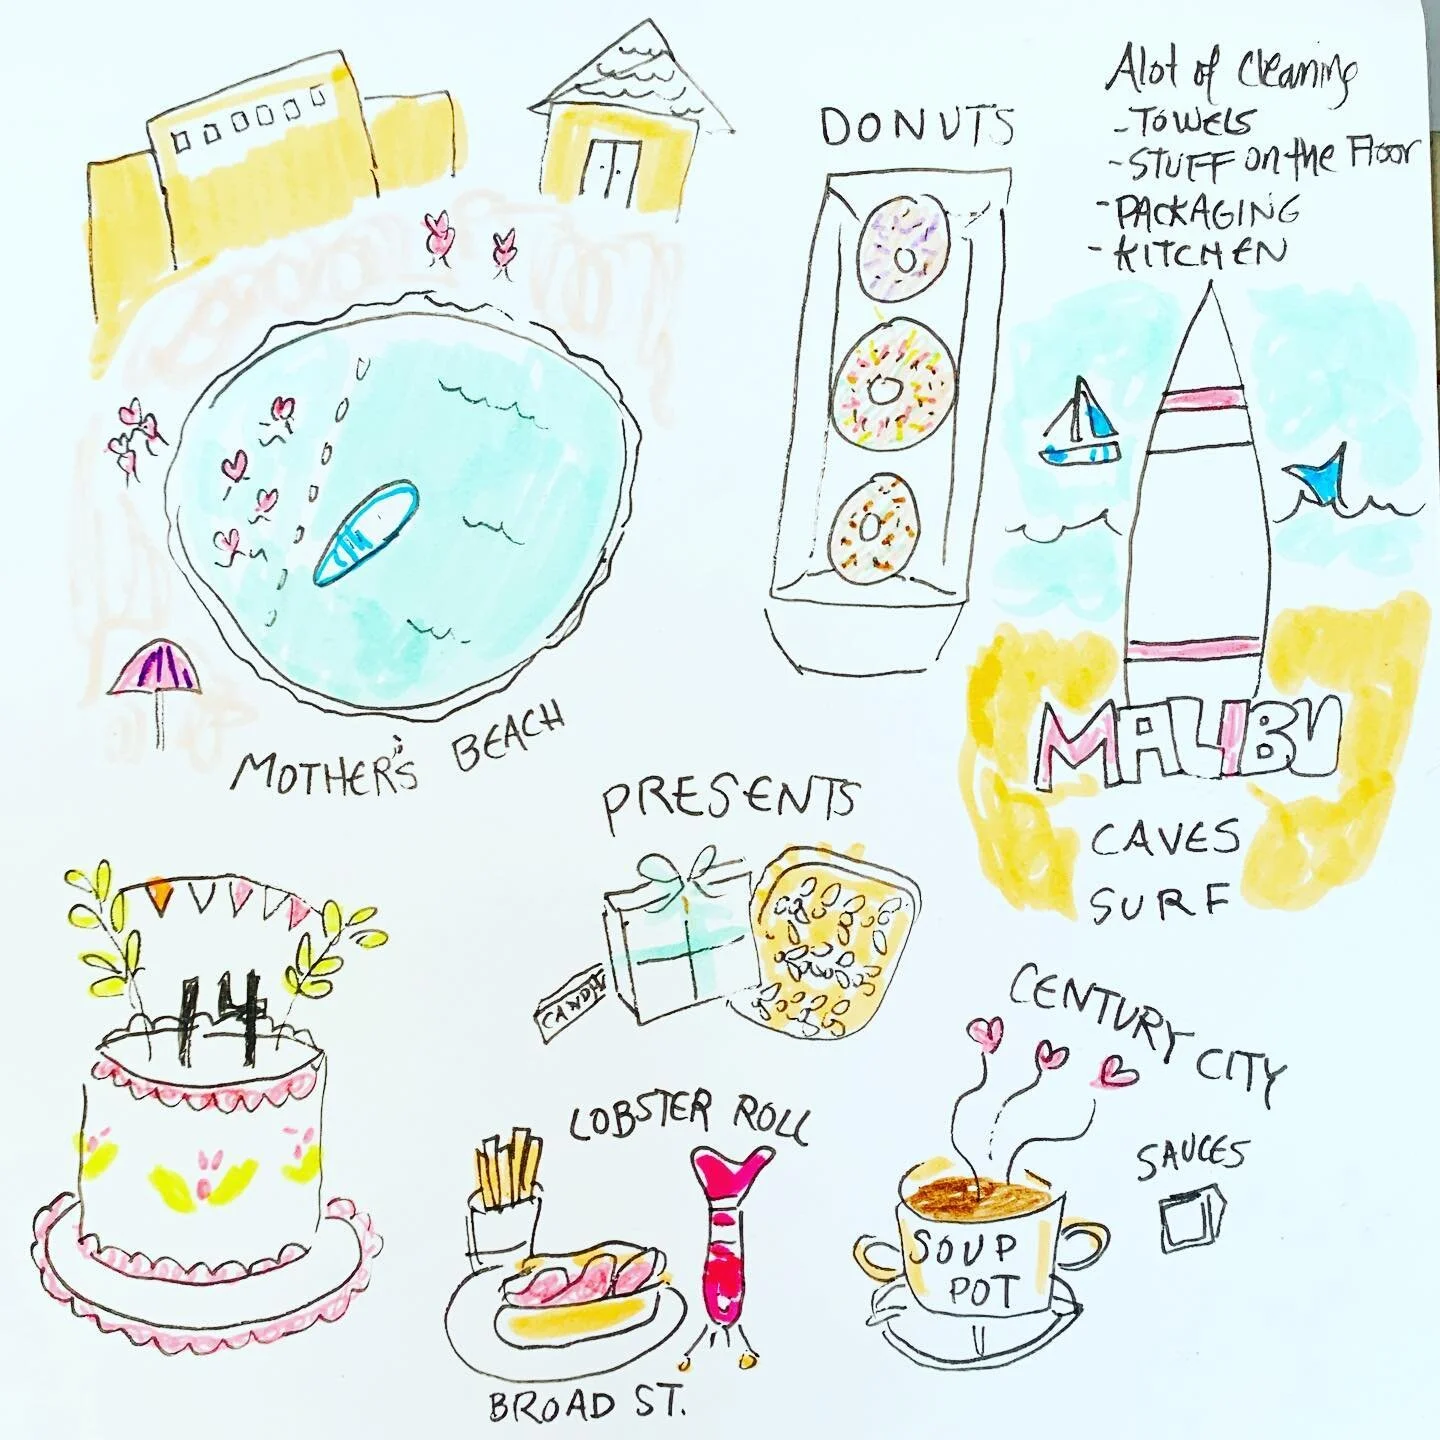 Alot of cleaning
- TOWELS
- STUFF on the Floor
- PACKAGING
- KITCHEN
DONUTS
MOTHER'S BEACH
MALIBU
CAVES
SURF
PRESENTS
14
LOBSTER ROLL
BROAD ST.
CENTURY CITY
SAUCES
SOUP
POT